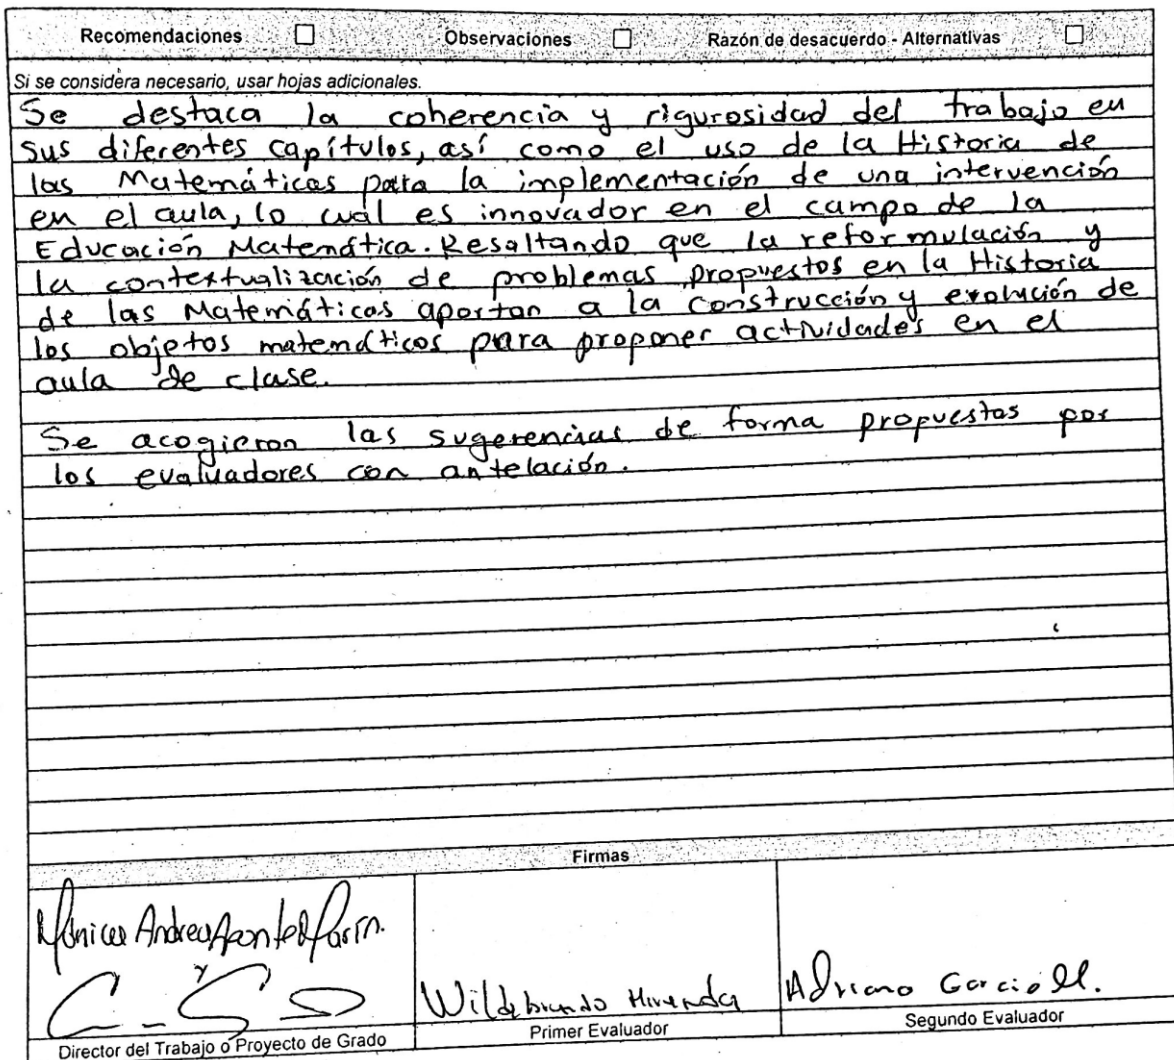 Recomendaciones ☐ Observaciones ☐ Razón de desacuerdo - Alternativas ☐
Si se considera necesario, usar hojas adicionales.
Se destaca la coherencia y rigurosidad del trabajo en
sus diferentes capítulos, así como el uso de la Historia de
las Matemáticas para la implementación de una intervención
en el aula, lo cual es innovador en el campo de la
Educación Matemática. Resaltando que la reformulación y
la contextualización de problemas propuestos en la Historia
de las Matemáticas aportan a la construcción y evolución de
los objetos matemáticos para proponer actividades en el
aula de clase.
Se acogieron las sugerencias de forma propuestas por
los evaluadores con antelación.
Firmas
Mónica Andrea Aponte Marín.
y
Wildebrando Miranda
Adriana García M.
Director del Trabajo o Proyecto de Grado
Primer Evaluador
Segundo Evaluador